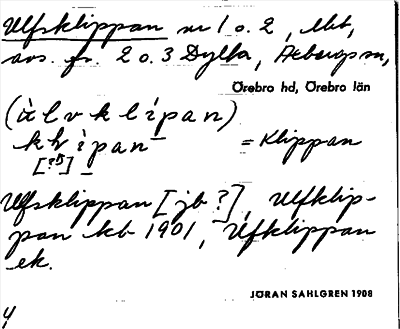 Ulfsklippan nr 1 o. 2, lht,
avs. fr. 2 o. 3 Dylta, Axbergs sn,
Örebro hd, Örebro län
(ùlvklípan)
klípan = Klippan
[?]
Ulfsklippan [jb ?], Ulfklip-
pan kb 1901, Ufklippan
ek.
JÖRAN SAHLGREN 1908